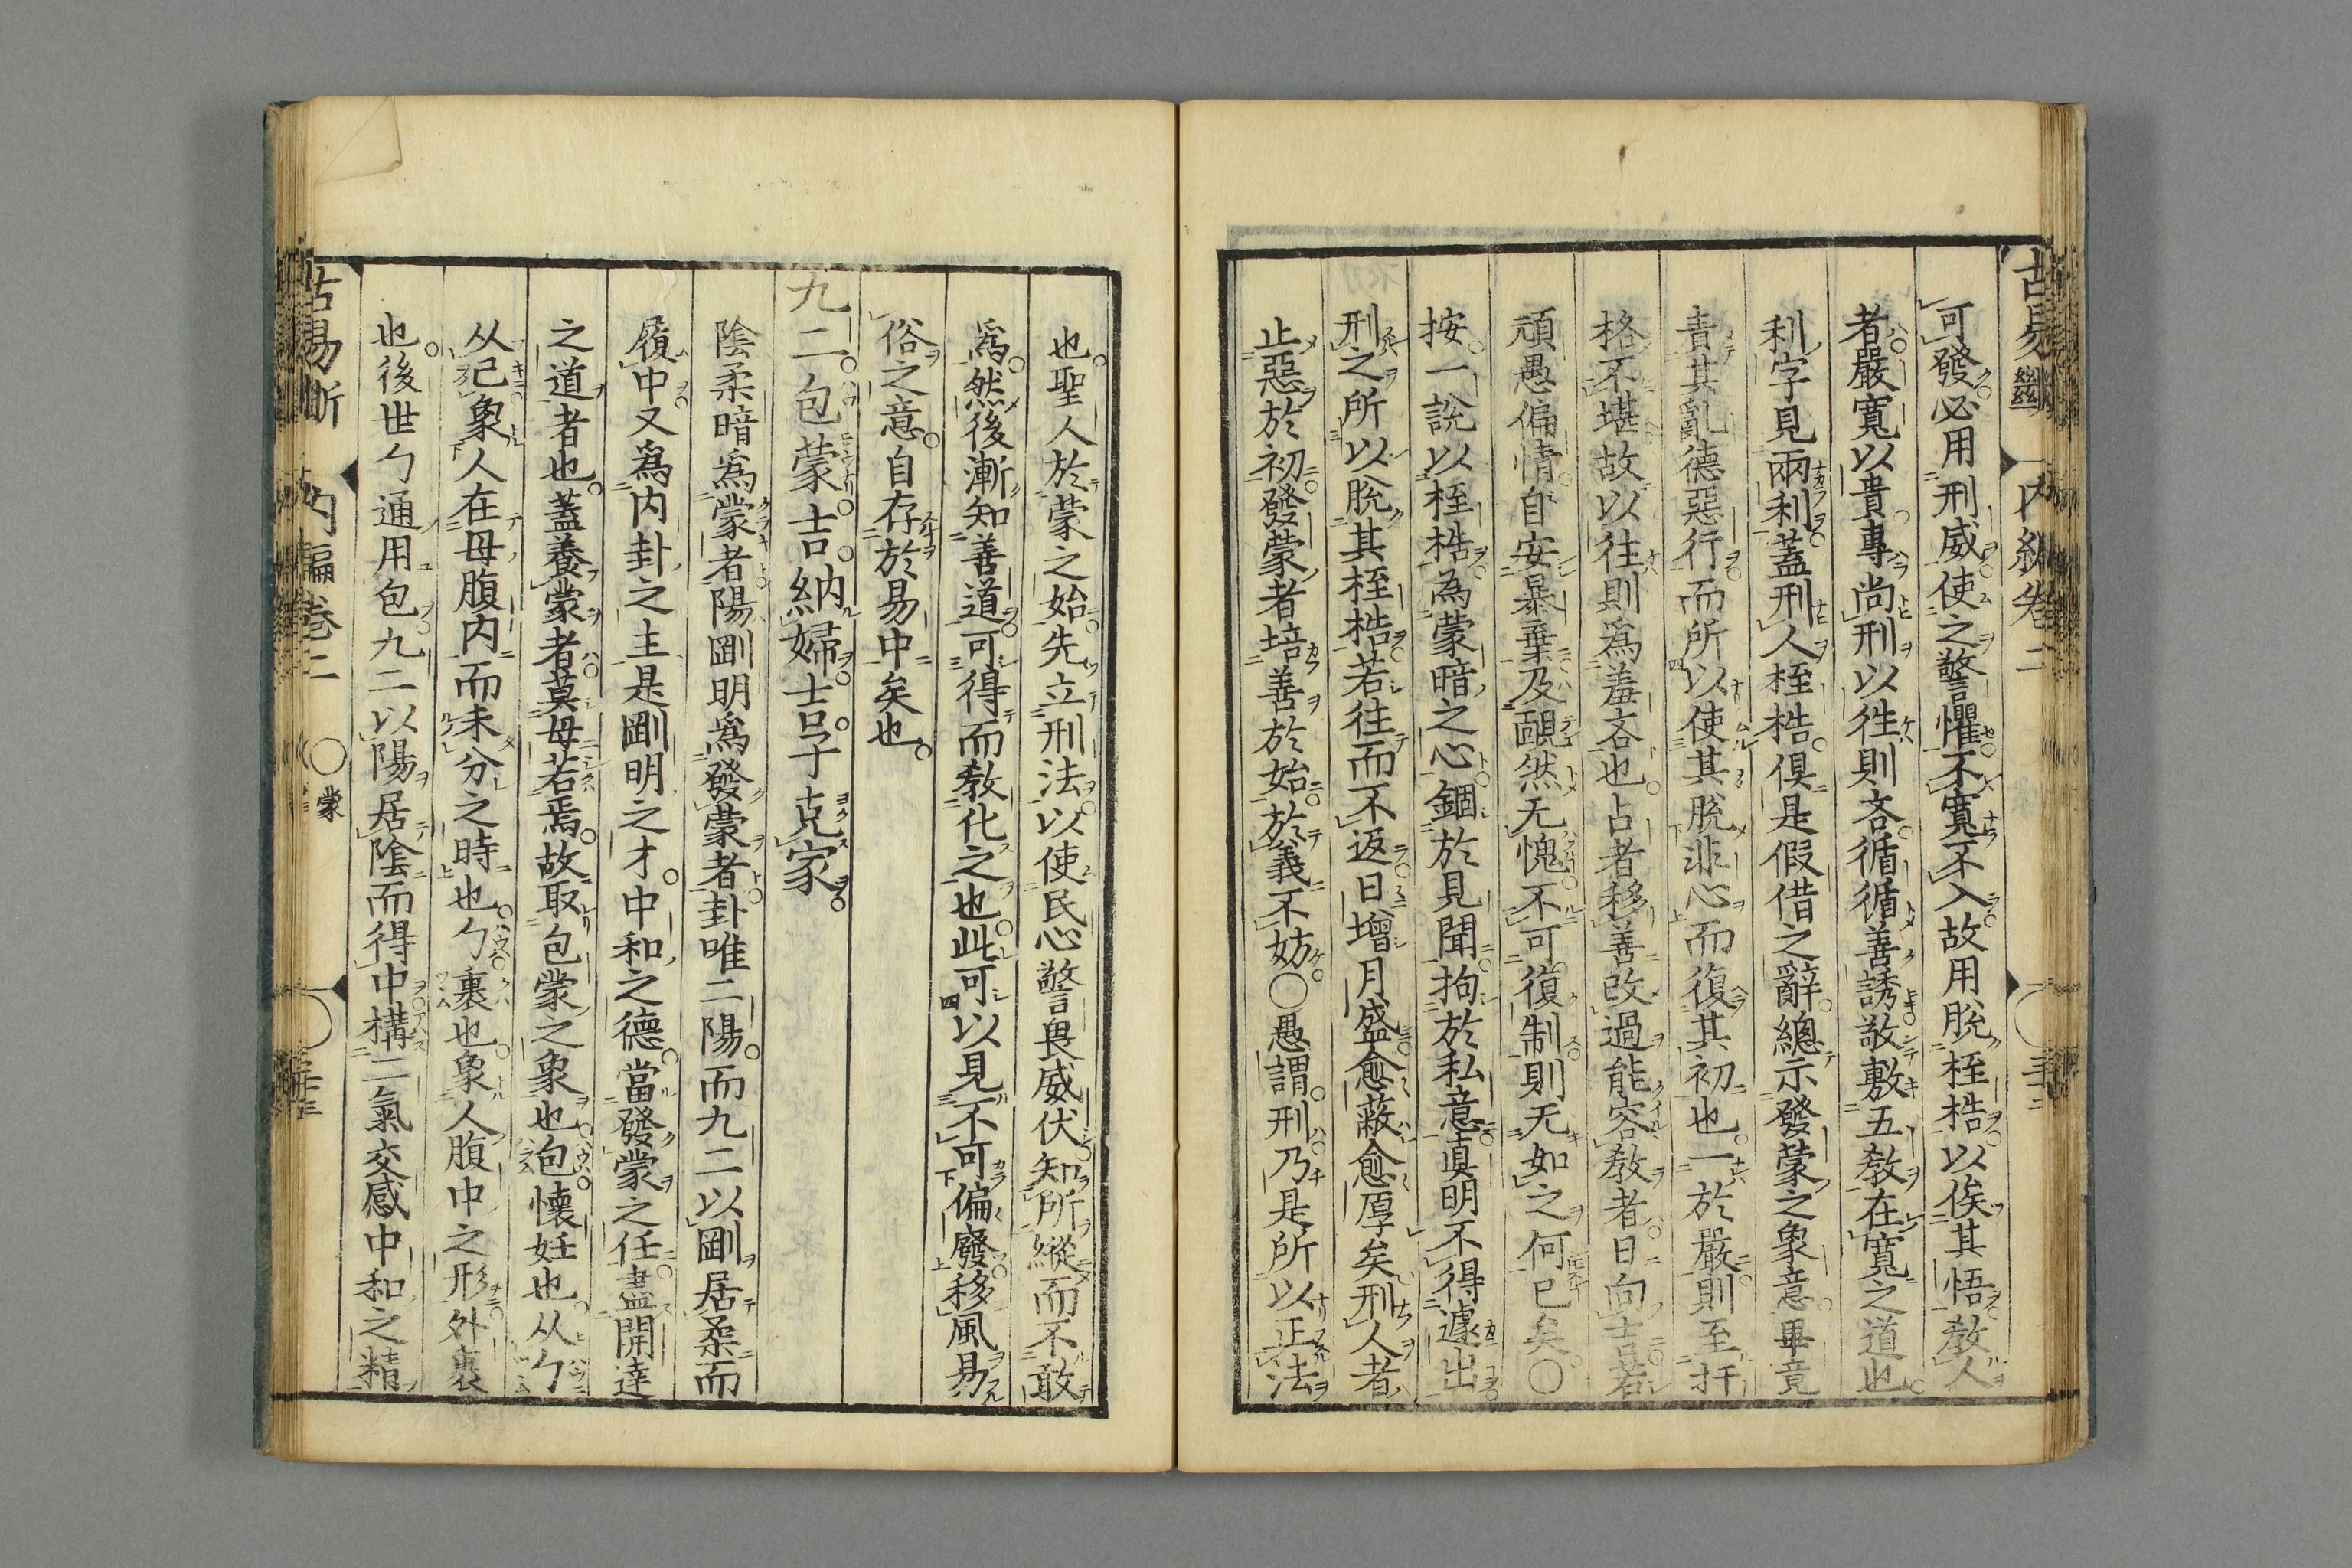 古易斷 内編卷二
可發必用刑威使之警懼不寬不入故用脫桎梏以俟其悟教人
者嚴寬以貴專尚刑以徃則吝循循善誘敬敷五教在寬之道也
利字見兩利蓋刑人桎梏俱是假借之辭總示發蒙之象意畢竟
責其亂德惡行而所以使其脫非心而復其初也一於嚴則至扞
格不堪故以往則爲羞吝也占者移善改過能容教者日向吉若
頑愚偏情自安暴棄及靦然无愧不可復制則无如之何已矣〇
按一說以桎梏為蒙暗之心錮於見聞拘於私意眞明不得遽出
刑之所以脫其桎梏若往而不返日增月盛愈蔽愈厚矣刑人者
止惡於初發蒙者培善於始於義不妨〇愚謂刑乃是所以正法
也聖人於蒙之始先立刑法以使民心警畏威伏知所縱而不敢
爲然後漸知善道可得而教化之也此可以見不可偏廢移風易
俗之意自存於易中矣也
九二包蒙吉納婦吉子克家
陰柔暗爲蒙者陽剛明爲發蒙者卦唯二陽而九二以剛居柔而
履中又爲内卦之主是剛明之才中和之德當發蒙之任盡開達
之道者也蓋養蒙者莫母若焉故取包蒙之象也包懷妊也从勹
从己象人在母腹内而未分之時也勹裹也象人腹中之形外裹
也後世勹通用包九二以陽居陰而得中構二氣交感中和之精
古易斷 内編卷二 〇蒙